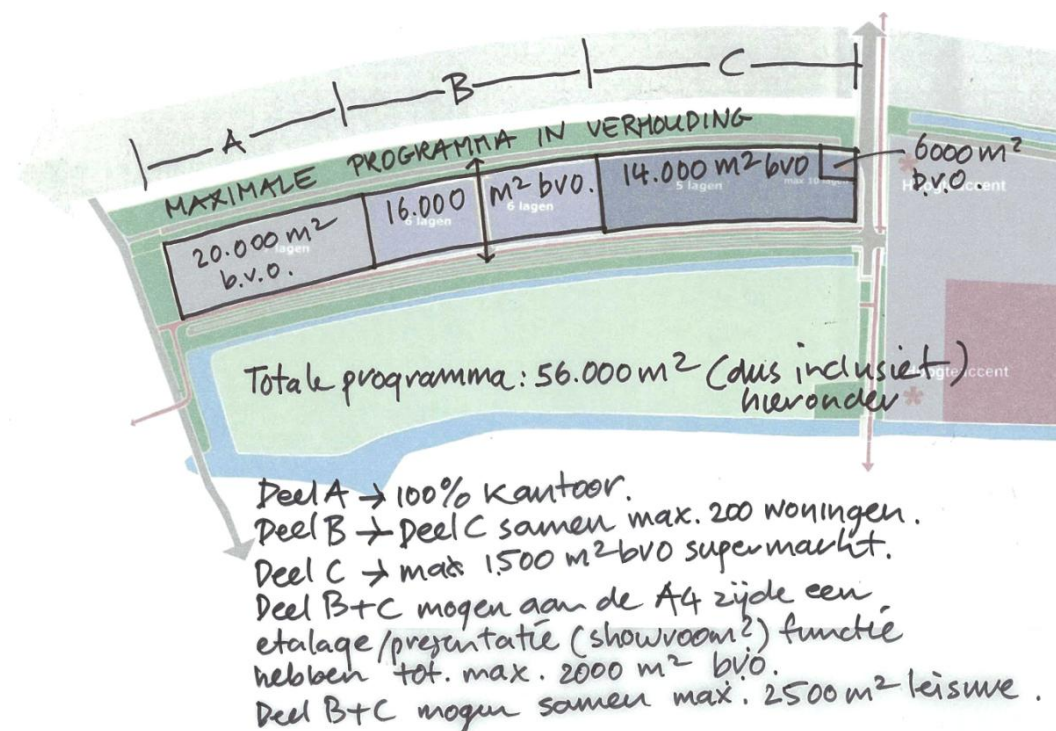 A
B
C
MAXIMALE PROGRAMMA IN VERHOUDING
20.000 m²
b.v.o.
lagen
16.000
m² bvo.
6 lagen
6 lagen
14.000 m² bvo
5 lagen
max 10 lagen
6000 m²
b.v.o.
Hoogteaccent
Totale programma: 56.000 m² (dus inclusief)
hieronder
Hoogteaccent
Deel A → 100% kantoor.
Deel B → Deel C samen max. 200 woningen.
Deel C → max 1.500 m² bvo supermarkt.
Deel B+C mogen aan de A4 zijde een
etalage/presentatie (showroom?) functie
hebben tot. max. 2000 m² bvo.
Deel B+C mogen samen max. 2500 m² leisure.